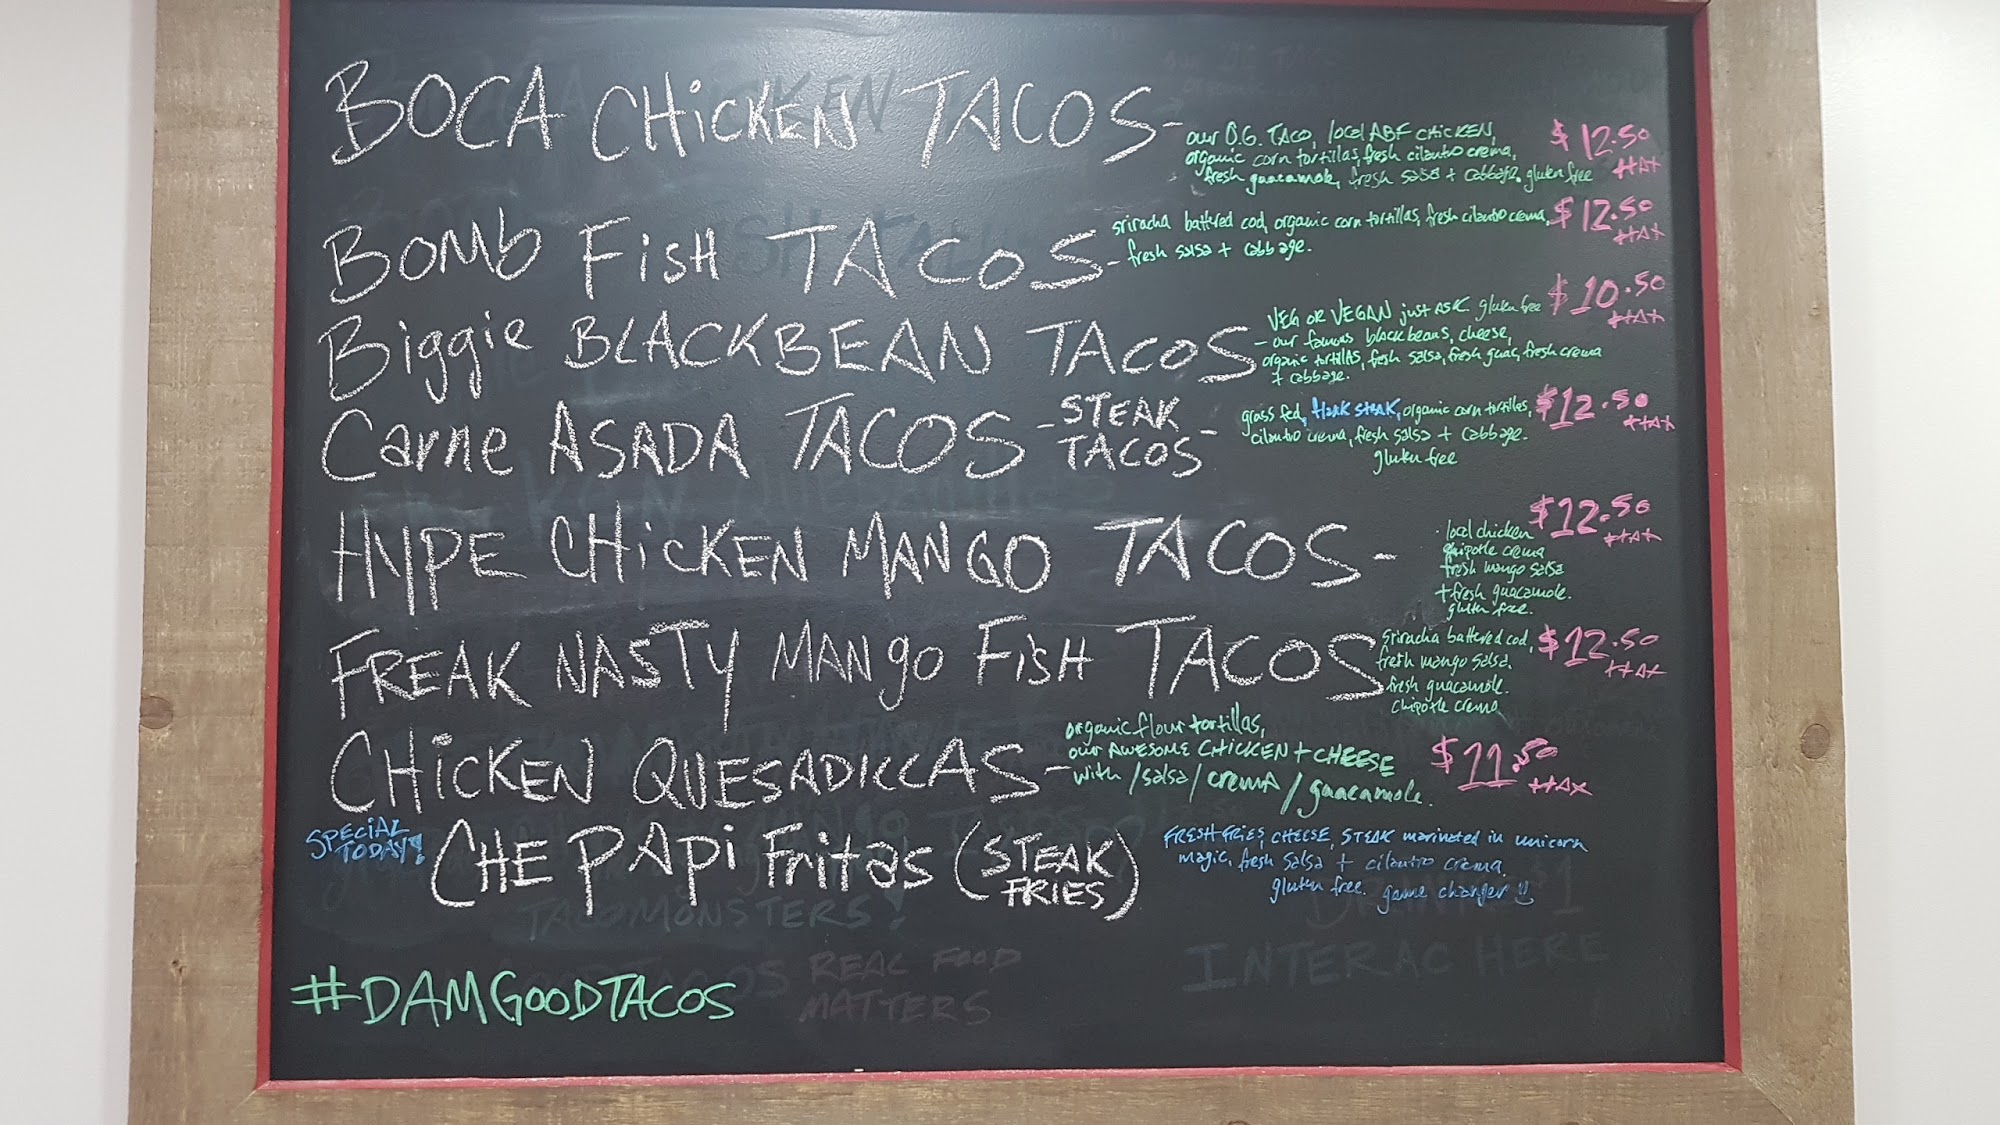 BOCA CHICKEN TACOS-
our O.G. TACO, local ABF CHICKEN,
organic corn tortillas, fresh cilantro crema,
fresh guacamole, fresh salsa + cabbage. gluten free
$12.50
+tax
BOMB FISH TACOS-
sriracha battered cod, organic corn tortillas, fresh cilantro crema,
fresh salsa + cabbage.
$12.50
+tax
Biggie BLACKBEAN TACOS
VEG OR VEGAN just ASK gluten free
- our famous black beans, cheese,
organic tortillas, fresh salsa, fresh guac, fresh crema
+ cabbage.
$10.50
+tax
Carne ASADA TACOS-STEAK TACOS-
grass fed, STEAK, organic corn tortillas,
cilantro crema, fresh salsa + cabbage.
gluten free
$12.50
+tax
HYPE CHICKEN MANGO TACOS-
local chicken
chipotle crema
fresh mango salsa
+ fresh guacamole.
gluten free.
$12.50
+tax
FREAK NASTY MANGO FISH TACOS
sriracha battered cod,
fresh mango salsa.
fresh guacamole.
chipotle crema
$12.50
+tax
CHICKEN QUESADILLAS-
organic flour tortillas,
our AWESOME CHICKEN + CHEESE
with /salsa/crema/guacamole.
$11.50
+tax
SPECIAL
TODAY!
CHE PAPI Fritas (STEAK FRIES)
FRESH FRIES, CHEESE, STEAK marinated in unicorn
magic, fresh salsa + cilantro crema.
gluten free. game changer
#DAMGOODTACOS
TACOMONSTERS!
REAL FOOD
MATTERS
INTERAC HERE